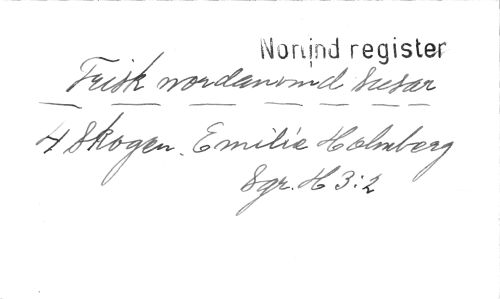 Nordlind register
Frisk nordanvind susar
4 Skogen. Emilie Holmberg
Sgr. H 3:2